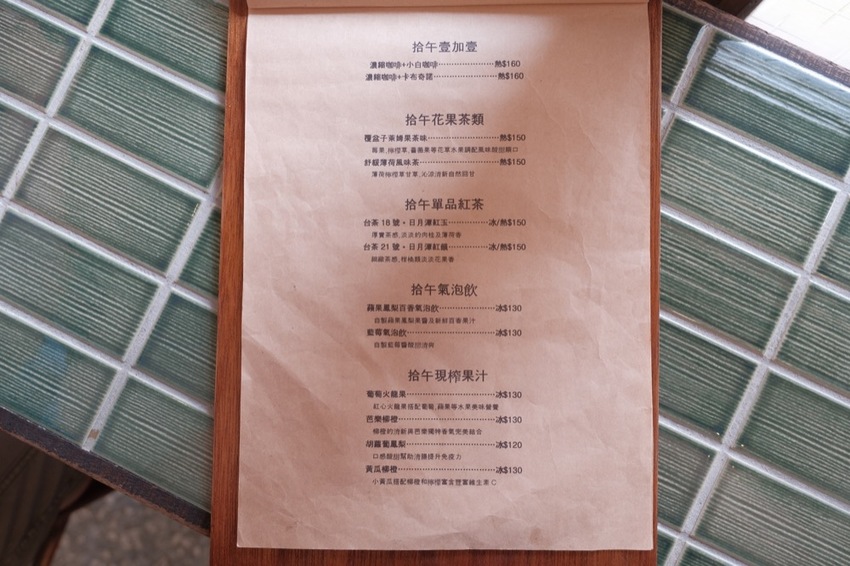 拾午壹加壹
濃縮咖啡+小白咖啡⋯⋯⋯⋯⋯⋯熱$160
濃縮咖啡+卡布奇諾⋯⋯⋯⋯⋯⋯熱$160
拾午花果茶類
覆盆子萊姆果茶味⋯⋯⋯⋯⋯⋯熱$150
莓果,檸檬草,薔薇果等花草水果調配風味酸甜順口
舒緩薄荷風味茶⋯⋯⋯⋯⋯⋯熱$150
薄荷檸檬草甘草,沁涼清新自然回甘
拾午單品紅茶
台茶 18 號・日月潭紅玉⋯⋯⋯⋯冰/熱$150
厚實茶感,淡淡的肉桂及薄荷香
台茶 21 號・日月潭紅韻⋯⋯⋯⋯冰/熱$150
細緻茶感,柑橘類淡淡花果香
拾午氣泡飲
蘋果鳳梨百香氣泡飲⋯⋯⋯⋯⋯⋯冰$130
自製蘋果鳳梨果醬及新鮮百香果汁
藍莓氣泡飲⋯⋯⋯⋯⋯⋯冰$130
自製藍莓醬酸甜清爽
拾午現榨果汁
葡萄火龍果⋯⋯⋯⋯⋯⋯冰$130
紅心火龍果搭配葡萄,蘋果等水果美味營養
芭樂柳橙⋯⋯⋯⋯⋯⋯冰$130
柳橙的清新與芭樂獨特香氣完美結合
胡蘿蔔鳳梨⋯⋯⋯⋯⋯⋯冰$120
口感酸甜幫助消腸提升免疫力
黃瓜柳橙⋯⋯⋯⋯⋯⋯冰$130
小黃瓜搭配柳橙和檸檬富含豐富維生素 C